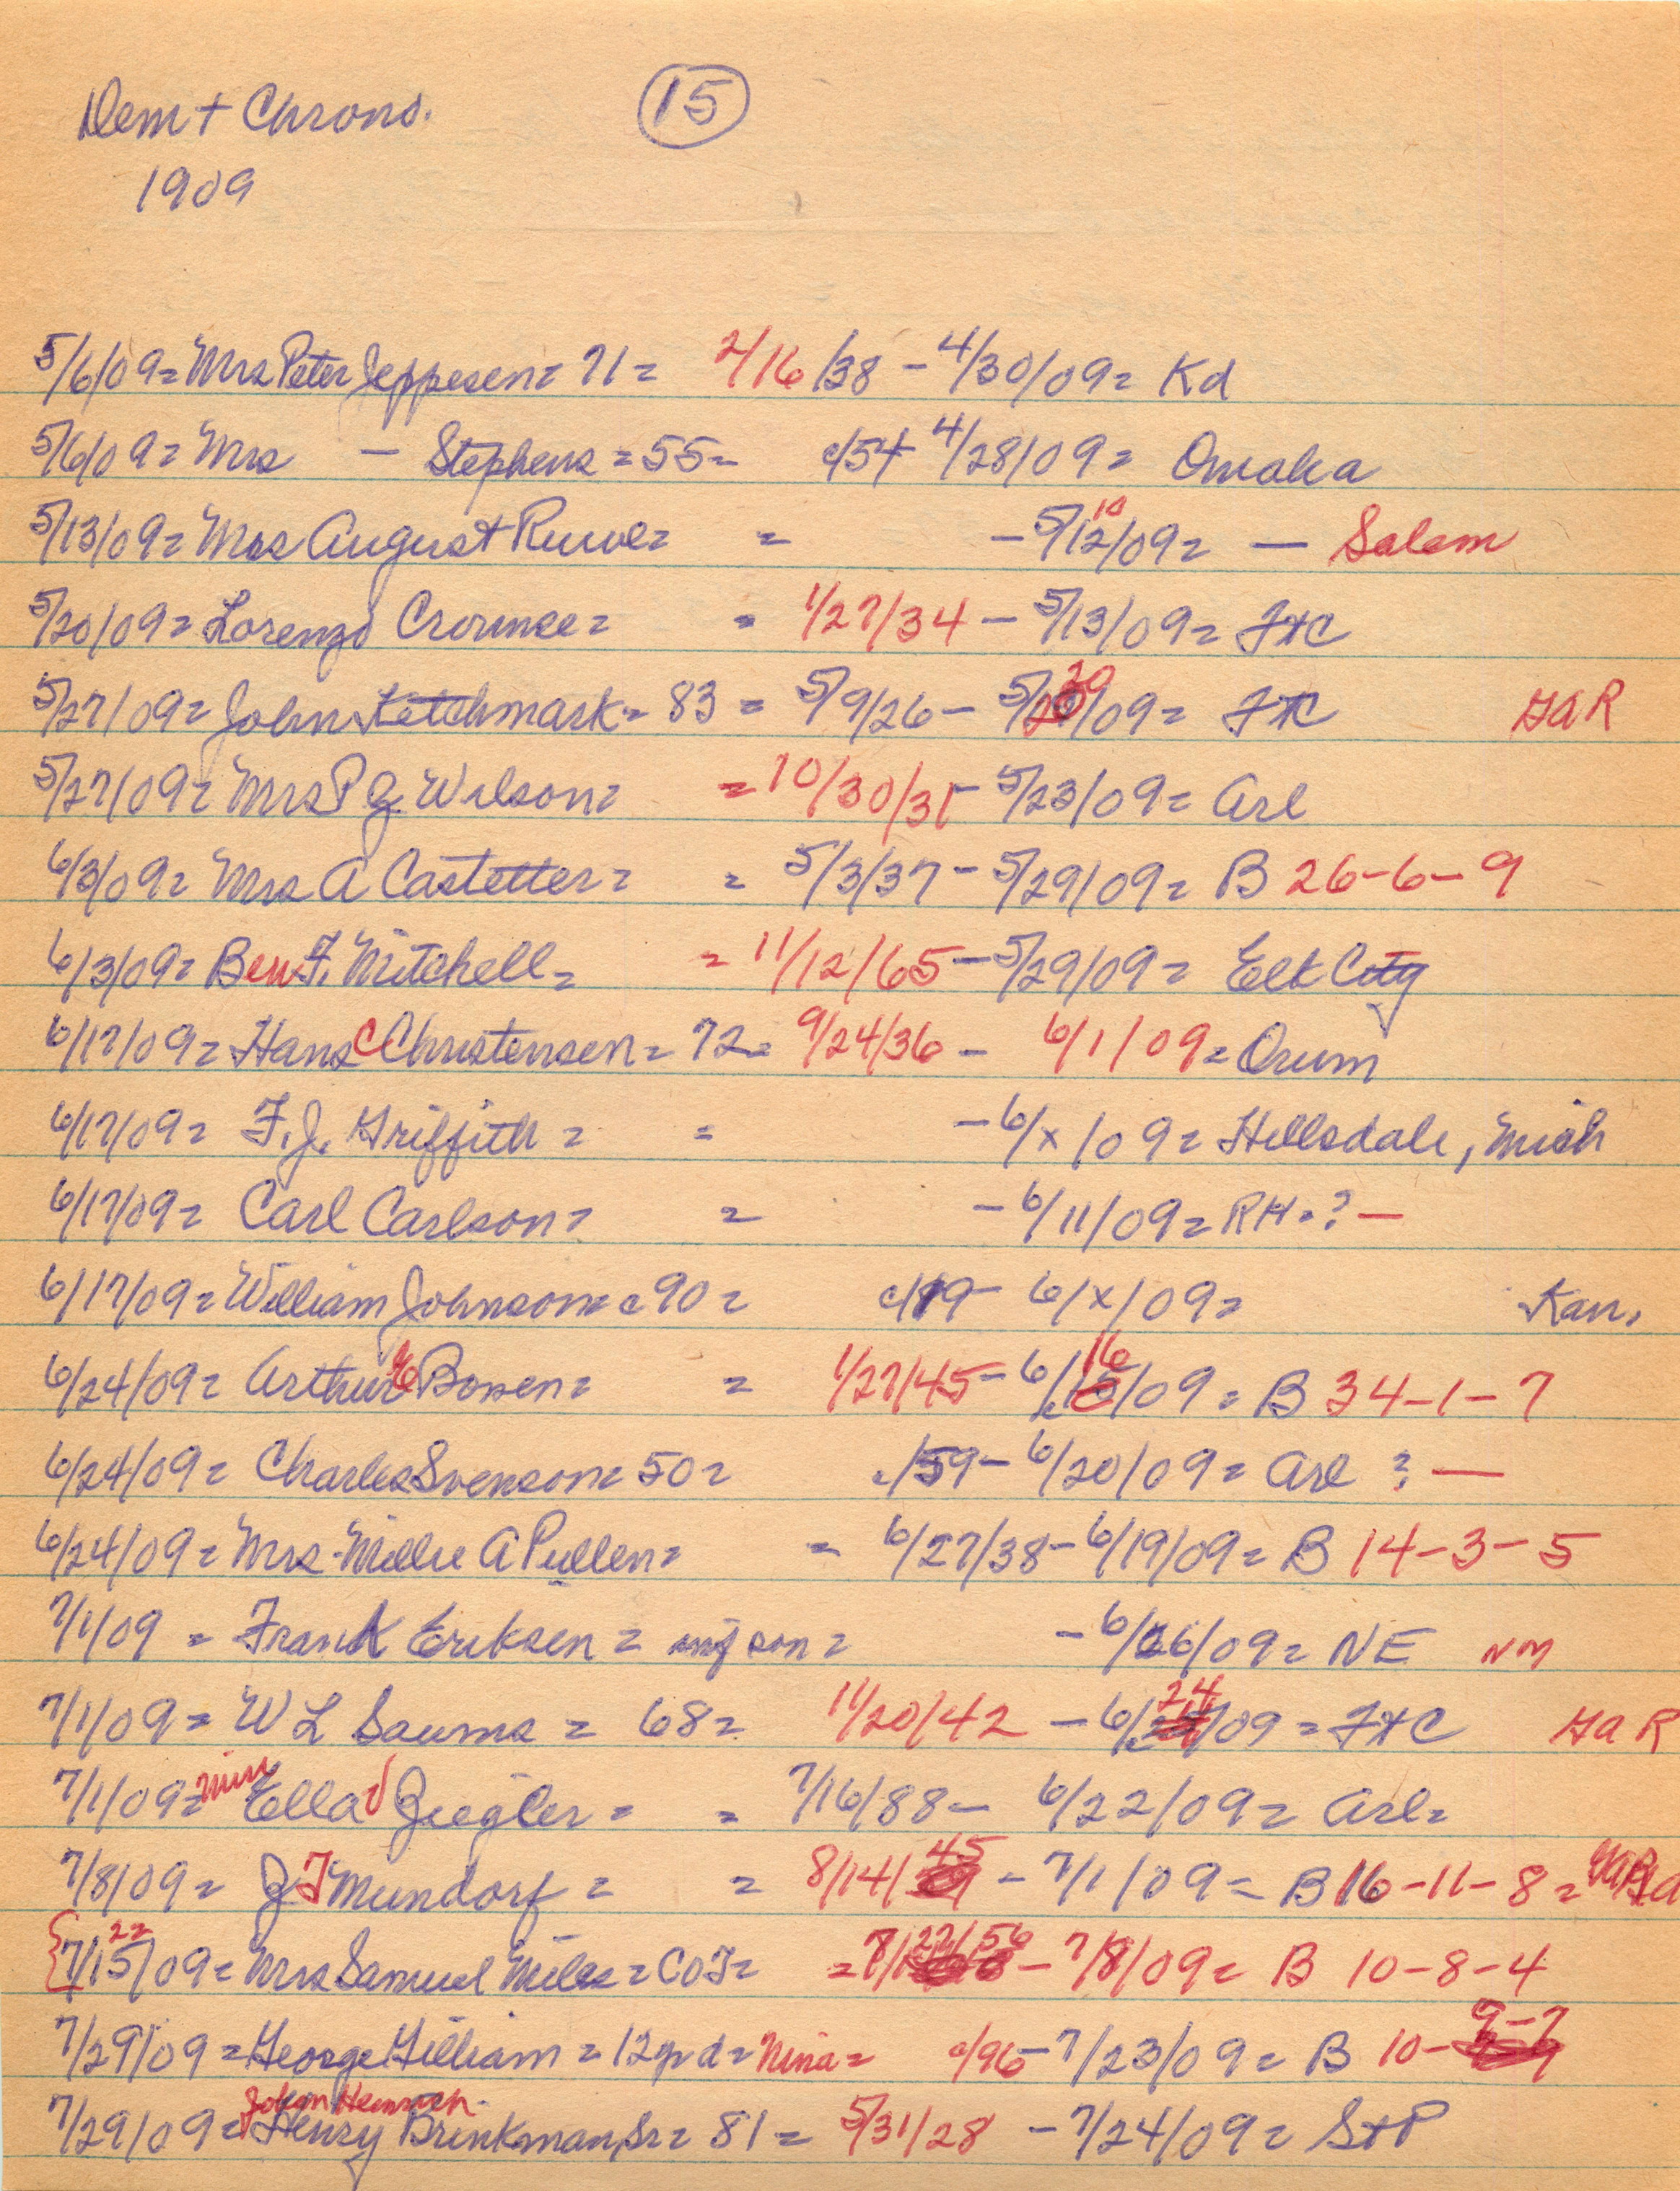 Dem + Chrono. (15)
1909
5/6/09 = Mrs Peter Jeppesen = 71 = 2/16/38 - 4/30/09 = Kd
5/6/09 = Mrs — Stephens = 55 = c/54 4/28/09 = Omaha
5/13/09 = Mrs August Ruwe = = - 5/12/09 = — Salem
5/20/09 = Lorenzo Crounse = = 1/27/34 - 5/13/09 = FtC
5/27/09 = John Ketchmark = 83 = 5/9/26 - 5/20/09 = FtC GAR
5/27/09 = Mrs P G Wilson = = 10/30/31 - 5/23/09 = Arl
6/3/09 = Mrs A Castetter = = 5/3/37 - 5/29/09 = B 26-6-9
6/3/09 = Ben F. Mitchell = = 11/12/65 - 5/29/09 = Elk City
6/17/09 = Hans C Christensen = 72 = 9/24/36 - 6/1/09 = Orum
6/17/09 = F. J. Griffith = = - 6/x/09 = Hillsdale, Mich
6/17/09 = Carl Carlson = = - 6/11/09 = RH = ? —
6/17/09 = William Johnson = c90 = c/19 - 6/x/09 = Kan.
6/24/09 = Arthur Bosen = = 1/27/45 - 6/16/09 = B 34-1-7
6/24/09 = Charles Svenson = 50 = c/59 - 6/20/09 = Arl ? —
6/24/09 = Mrs. Millie A Pullen = = 6/27/38 - 6/19/09 = B 14-3-5
7/1/09 = Frank Eriksen = inf son = - 6/26/09 = NE NM
7/1/09 = W L Saums = 68 = 11/20/42 - 6/24/09 = FtC GAR
7/1/09 = Miss Ella J Ziegler = = 7/16/88 - 6/22/09 = Arl =
7/8/09 = J T Mundorf = = 8/14/45 - 7/1/09 = B 16-11-8 =
7/15/09 22 = Mrs Samuel Miles = COF = = 7/27/56 - 7/8/09 = B 10-8-4
7/29/09 = George Gilliam = 12 gr d = Nina = c/96 - 7/23/09 = B 10-9-7
Johan Heinrich
7/29/09 = Henry Brinkman, Sr = 81 = 5/31/28 - 7/24/09 = St P